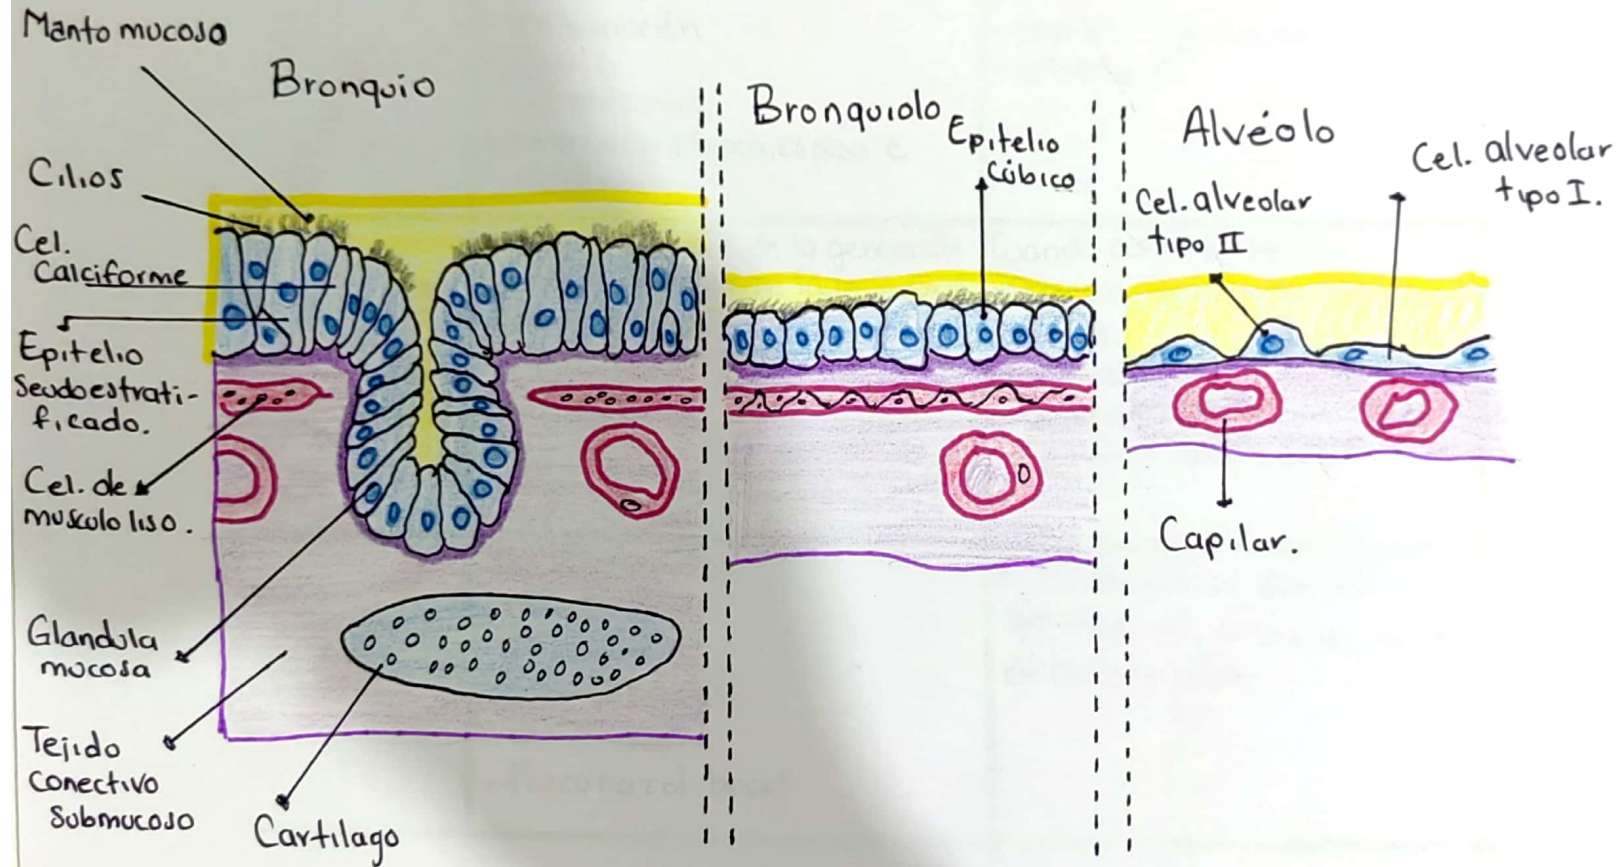 Manto mucoso
Bronquio
Cilios
Cel.
Calciforme
Epitelio
Seudoestrati-
ficado.
Cel. de
musculo liso.
Glandula
mucosa
Tejido
conectivo
Submucoso
Cartilago
Bronquiolo
Epitelio
Cúbico
Alvéolo
Cel. alveolar
tipo II
Cel. alveolar
tipo I.
Capilar.